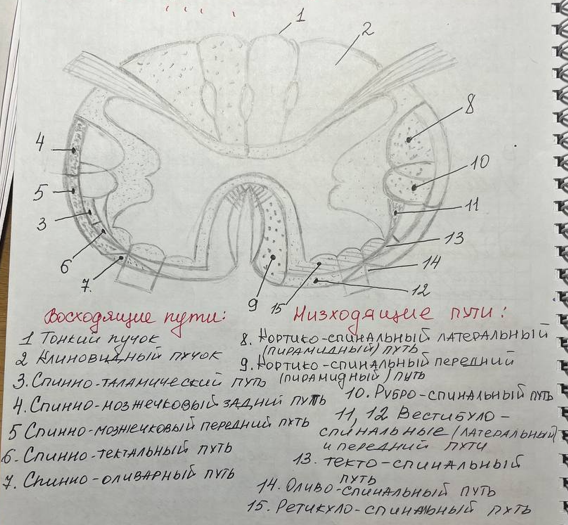 1
2
4
5
3
6
7.
8
10
11
13
14
12
15
9
Восходящие пути:
1 Тонкий пучок
2 Клиновидный пучок
3. Спинно-таламический путь
4. Спинно-мозжечковый задний путь
5 Спинно-мозжечковый передний путь
6. Спинно-тектальный путь
7. Спинно-оливарный путь
Низходящие пути:
8. Кортико-спинальный латеральный
(пирамидный) путь
9. Кортико-спинальный передний
(пирамидный) путь
10. Рубро-спинальный путь
11, 12 Вестибуло-
спинальные (латеральный
и передний пути
13. Текто-спинальный
путь
14. Оливо-спинальный путь
15. Ретикуло-спинальный путь